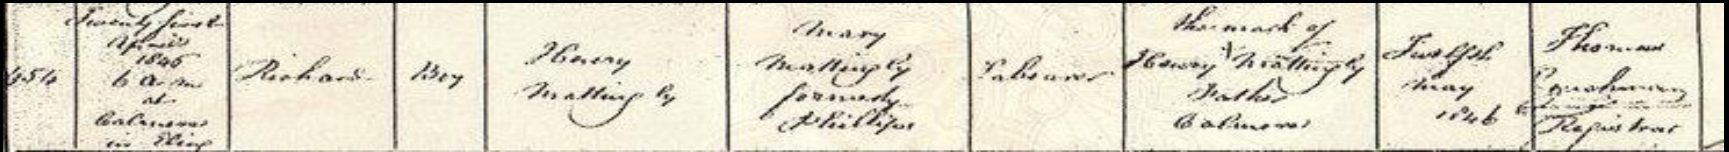 454
Twenty first
April
1846
6 a.m
at
Calmore
in Eling
Richard
Boy
Henry
Mattingly
Mary
Mattingly
formerly
Phillips
Labourer
The mark of
Henry X Mattingly
Father
Calmore
Twelfth
May
1846
Thomas
Registrar